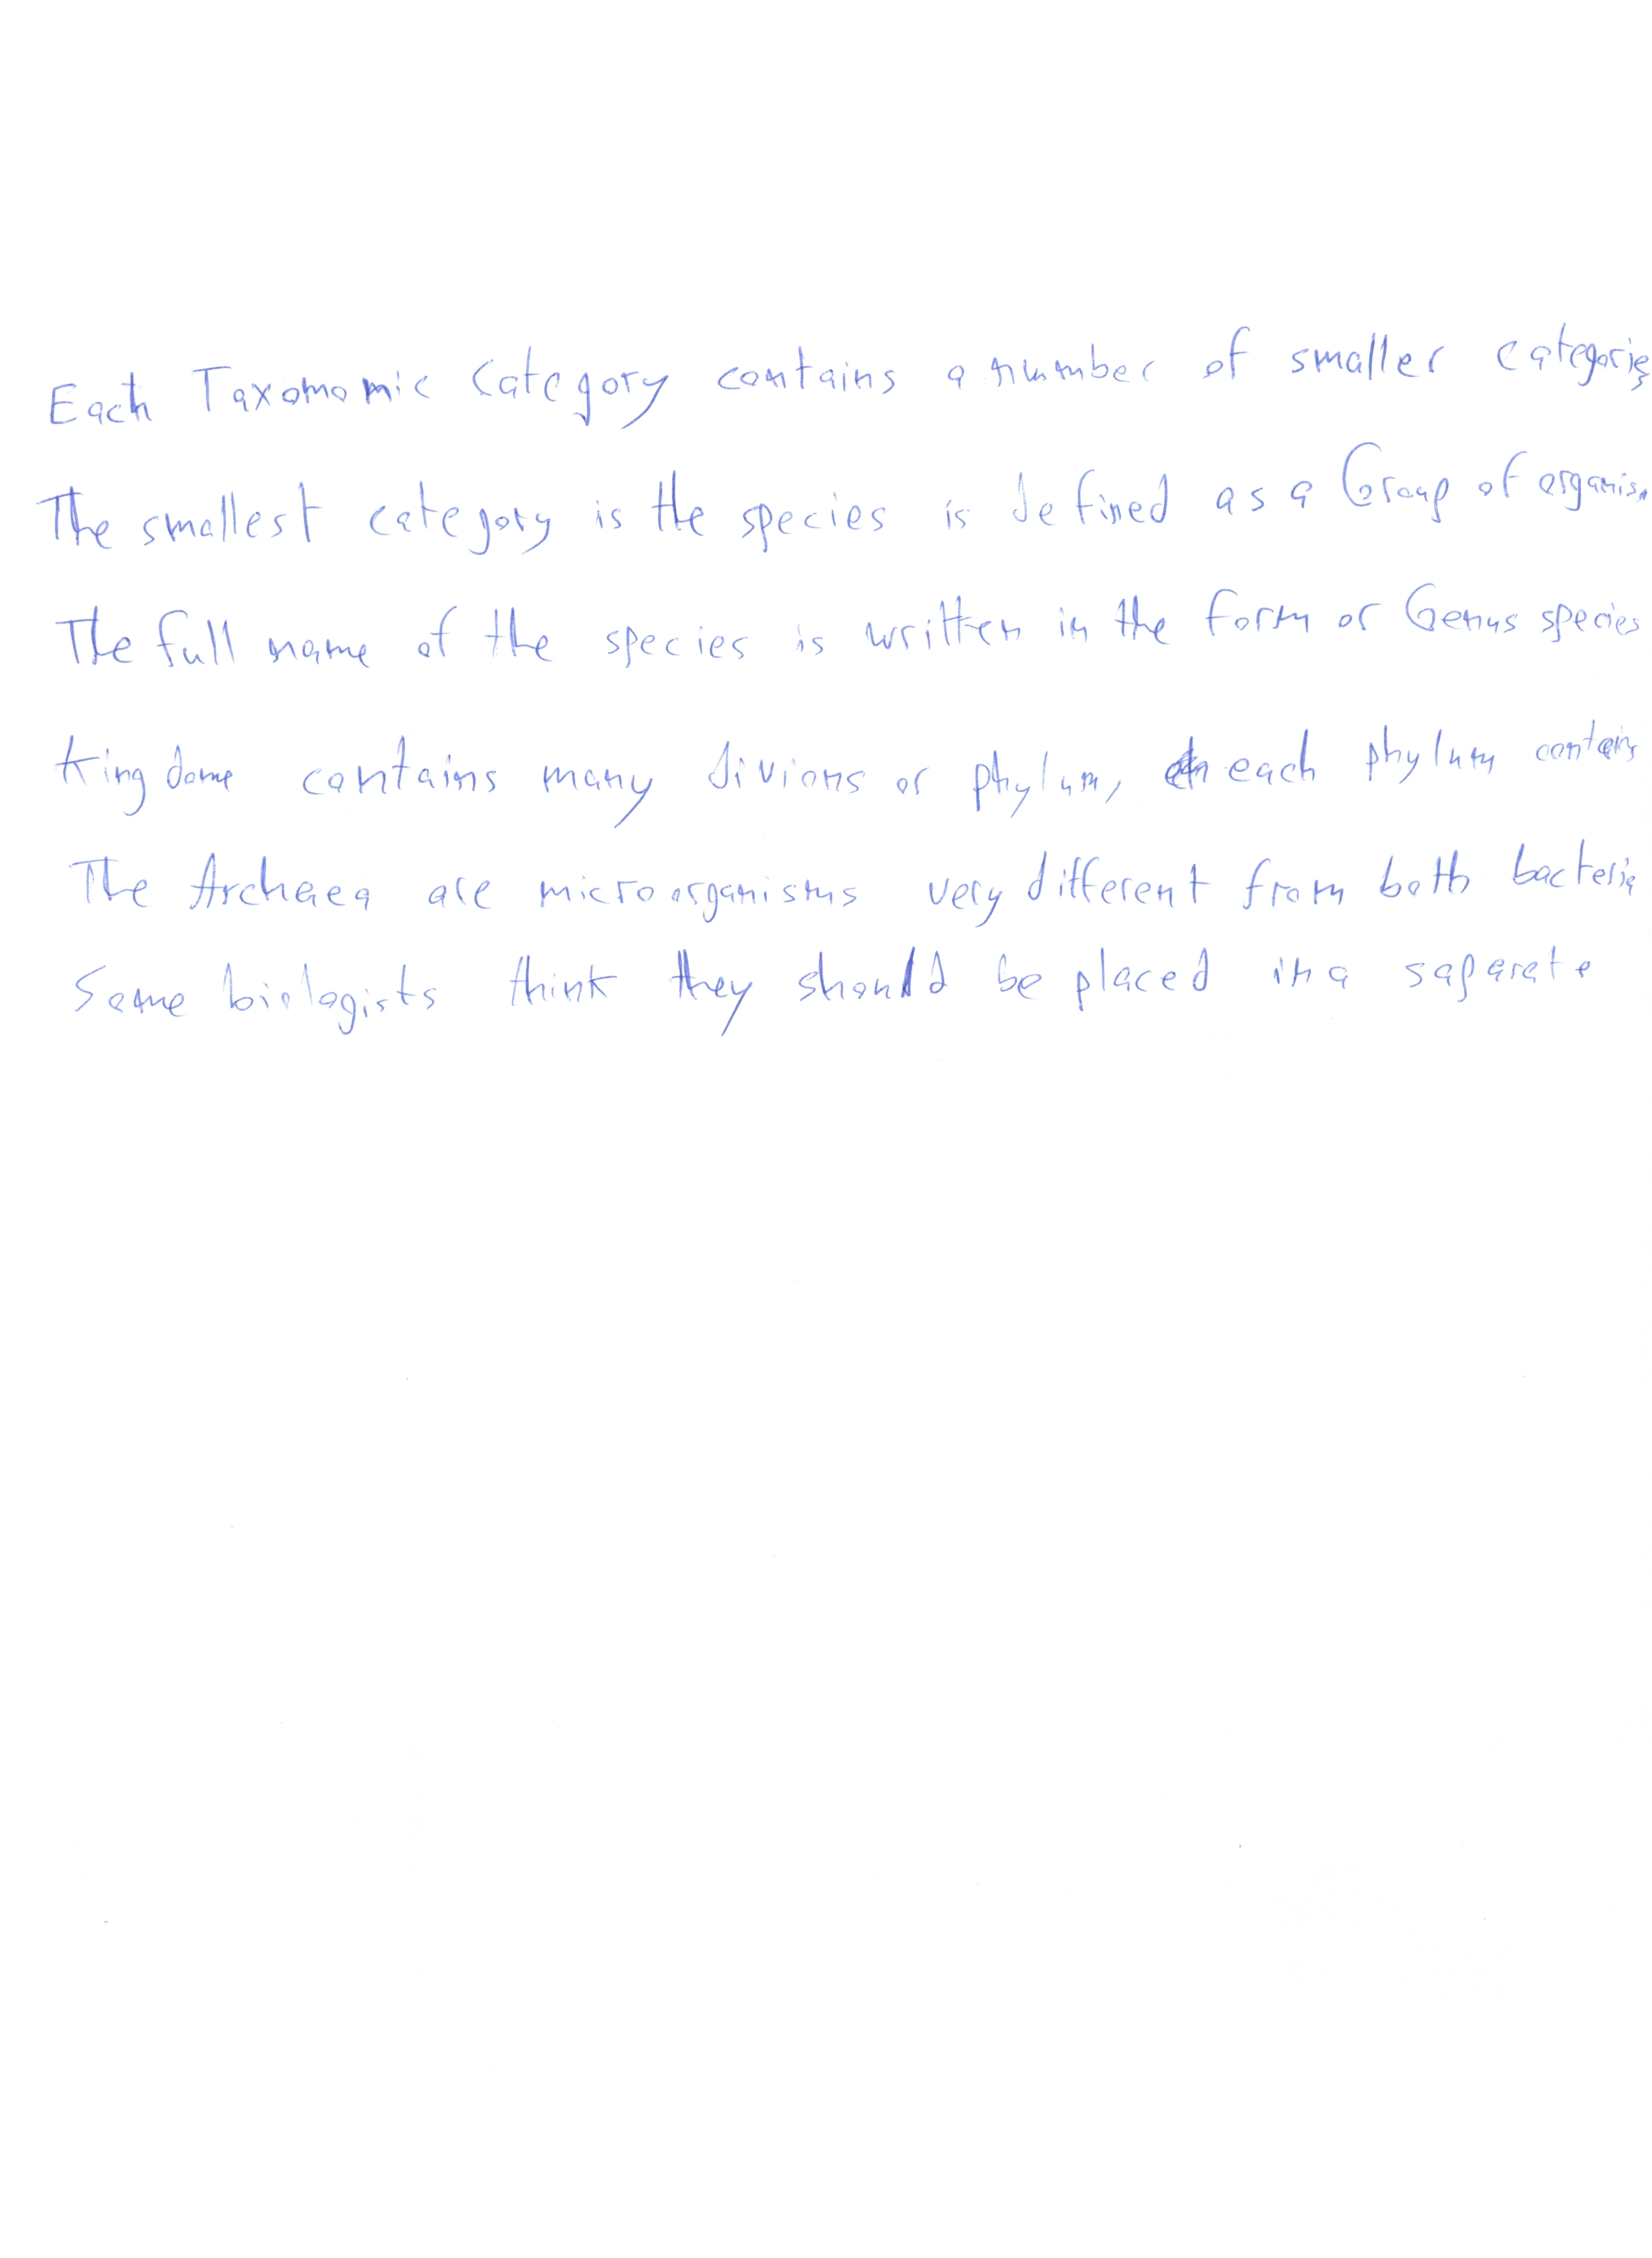 Each Taxonomic Category contains a number of smaller categories
The smallest category is the species is defined as a Group of organis
The full name of the species is written in the form or Genus species
Kingdome contains many divions or phylum, each phylum contains
The Archaea are microorganisms very different from both bacteria
Some biologists think they should be placed in a saparate